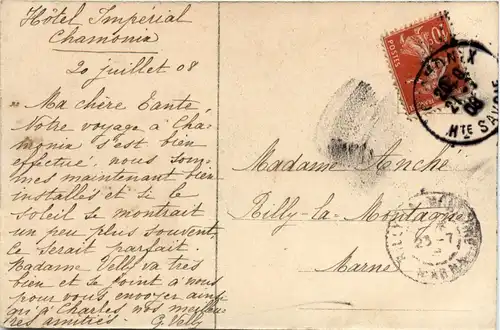 Hôtel Impérial
Chamonix
20 juillet 08
" Ma chère Tante
Notre voyage à Cha-
monix s'est bien
effectué, nous som-
mes maintenant bien
installés et si le
soleil se montrait
un peu plus souvent,
ce serait parfait.
Madame Velly va très
bien et se joint à nous
pour vous envoyer ainsi
qu'à Charles nos meilleu-
res amitiés. G. Velly
POSTES
10
CHAMONIX
08
HTE SAVOIE
Madame Anché
Rilly-la-Montagne
Marne
23-7
MARNE